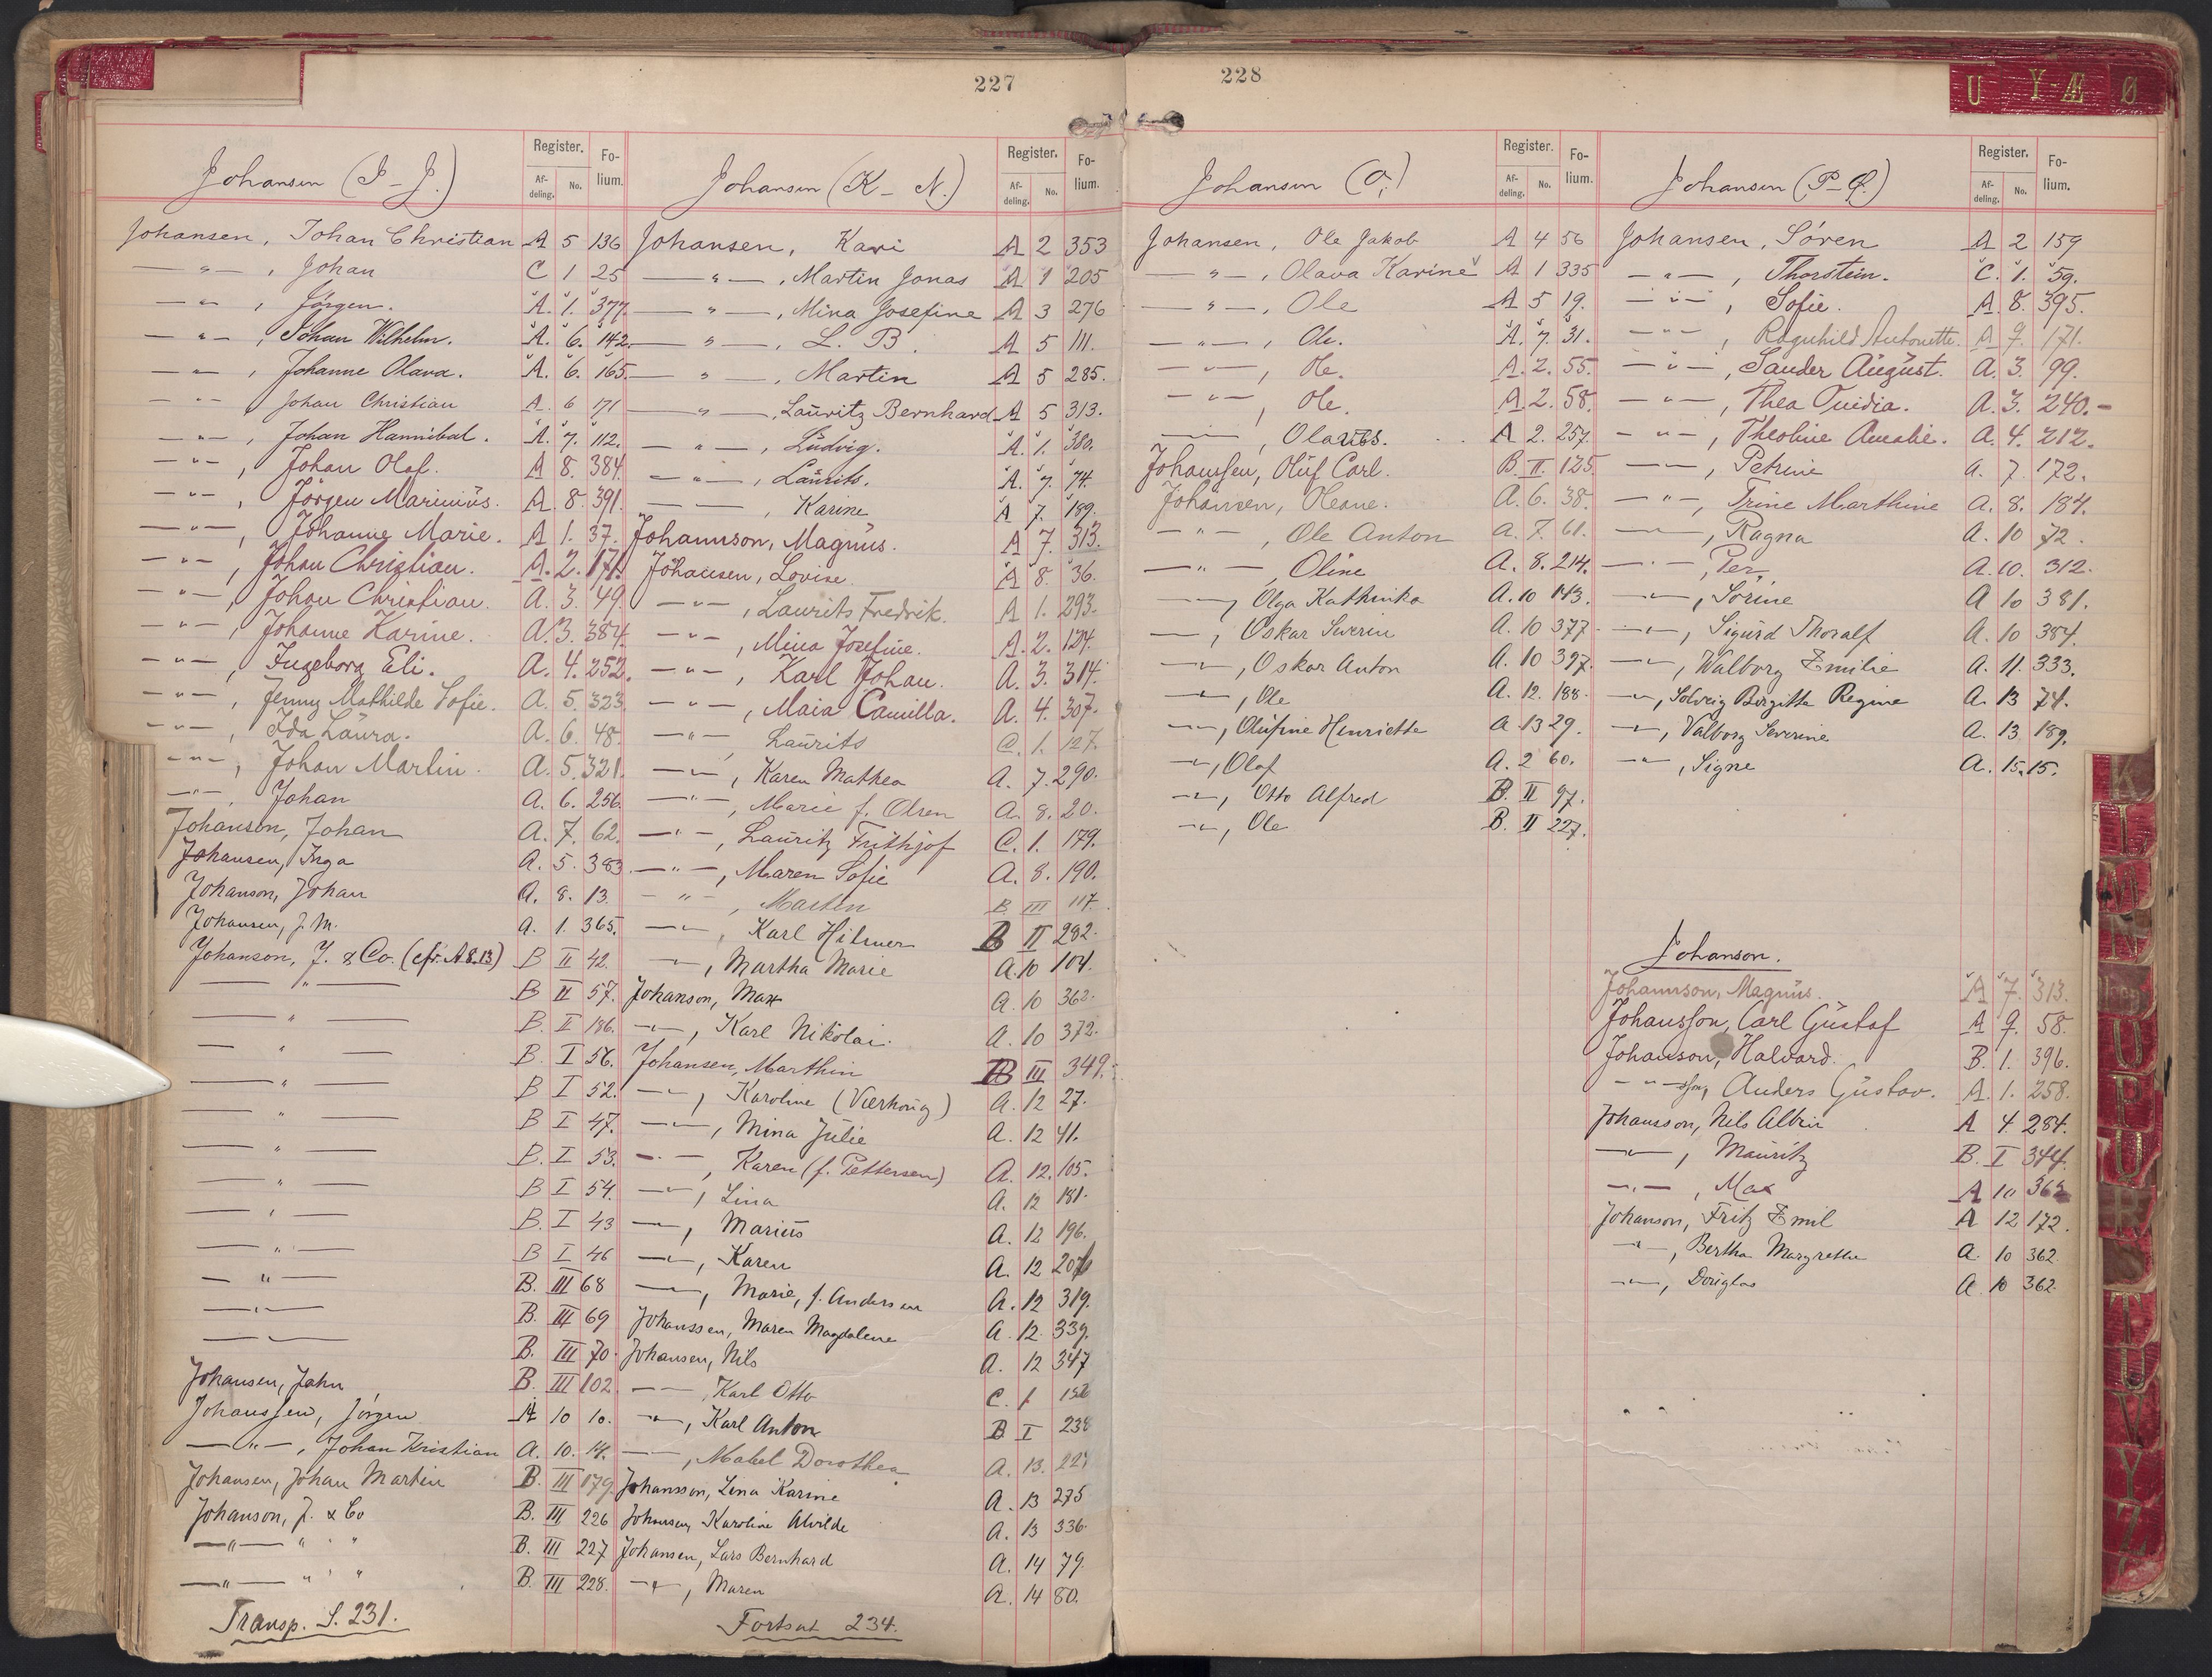 227
Johansen (I-J.)
Register.
Fo-
lium.
Af-
deling.
No.
Johansen, Johan Christian A 5 136
—"—, Johan C 1 25
—"—, Jörgen. A. 1. 377.
—"—, Johan Wilhelm. A. 6. 142.
—"—, Johanne Olava. A. 6. 165.
—"— Johan Christian A. 6 171
—"—, Johan Hannibal. A. 7. 112.
—"—, Johan Olaf. A 8. 384.
—"—, Jörgen Marinius. A. 8. 391.
—"—, Johanne Marie. A 1. 37.
—"—, Johan Christian. A. 2. 171.
—"—, Johan Christian. A. 3. 49.
—"—, Johanne Karine. A. 3. 384.
—"—, Ingeborg Eli. A. 4. 252.
—"—, Jenny Mathilde Sofie. A. 5. 323.
—"—, Ida Laura. A. 6. 48.
—"—, Johan Martin. A. 5. 321.
—"—, Johan A. 6. 256.
Johanson, Johan A. 7. 62.
Johansen, Inga A. 5. 383.
Johanson, Johan A. 8. 13.
Johansen, J. M. A. 1. 365.
Johanson, J. & Co. (cfr. A 8.13) B II 42.
—"— B II 57.
—"— B. I 186.
—"— B. I 56.
—"— B I 52.
—"— B I 47.
—"— B. I 53.
—"— B I 54.
—"— B. I 43
—"— B I 46
—"— B. III 68
—"— B. III 69
—"— B. III 70.
Johansen, Jahn B. III 102.
Johanssen, Jörgen A 10 10.
—"—, Johan Kristian A. 10. 14.
Johansen, Johan Martin B. III 179.
Johanson, J. & Co B. III 226
—"— " " B. III 227
—"— " " B. III 228.
Transp. S. 231.
Johansen (K-N.)
Register.
Fo-
lium.
Af-
deling.
No.
Johansen, Kari A 2 353
—"—, Martin Jonas A 1 205
—"—, Mina Josefine A 3 276
—"—, L. B. A 5 111.
—"—, Martin A 5 285.
—"—, Lauritz Bernhard A 5 313.
—"—, Ludvig. A. 1. 380.
—"—, Laurits. A. 7. 74
—"—, Karine A 7. 189.
Johannson, Magnus. A 7. 313.
Johansen, Lovise. A 8. 36.
—"—, Laurits Fredrik. A 1. 293.
—"—, Mina Josefine. A. 2. 124.
—"—, Karl Johan. A. 3. 314.
—"—, Maia Camilla. A. 4. 307.
—"—, Laurits C. 1. 127.
—"—, Karen Mathea A. 7. 290.
—"—, Marie f. Olsen A. 8. 20.
—"—, Lauritz Frithjof C. 1. 179.
—"—, Maren Sofie A. 8. 190.
—"—, Martin B. III 117.
—"—, Karl Hilmer B II 282.
—"—, Martha Marie A. 10 104.
Johanson, Max A. 10 362.
—"—, Karl Nikolai. A. 10 372.
Johansen, Marthin B III 349.
—"—, Karoline (Værhoug) A. 12 27.
—"—, Mina Julie A. 12 41.
—"—, Karen (f. Pettersen) A. 12. 105.
—"—, Lina A. 12 181.
—"—, Marius A. 12 196.
—"—, Karen A. 12
—"—, Marie, f. Andersen A. 12 319.
Johanssen, Maren Magdalene A. 12. 339.
Johansen, Nils A. 12 347
—"—, Karl Otto C. 1
—"—, Karl Anton B I 238
—"—, Mabel Dorothea A. 13.
Johansson, Lina Karine A. 13 275
Johansen, Karoline Alvilde A. 13 336.
Johansen, Lars Bernhard A. 14 79.
—"—, Maren A. 14 80.
Fortsat 234.
228
U Y-Æ Ø
Johansen (O.)
Register.
Fo-
lium.
Af-
deling.
No.
Johansen, Ole Jakob A 4 56
—"—, Olava Karine A 1 335
—"—, Ole A 5 19.
—"—, Ole. A. 7. 31.
—"—, Ole. A. 2. 55.
—"—, Ole. A. 2. 58.
—"—, Olaus. A 2. 257.
Johanssen, Oluf Carl. B. II. 125
Johansen, Oleane. A. 6. 38.
—"—, Ole Anton A. 7. 61.
—"—, Oline A. 8. 214.
—"—, Olga Kathinka A. 10 143.
—"—, Oskar Severin A. 10 377.
—"—, Oskar Anton A. 10 397.
—"—, Ole A. 12. 188.
—"—, Olufine Henriette A 13 29.
—"—, Olaf A. 2 60.
—"—, Otto Alfred B. II 97.
—"—, Ole B. II 227.
Johansen (P-Ø.)
Register.
Fo-
lium.
Af-
deling.
No.
Johansen, Sören A 2 159
—"—, Thorstein. C. 1. 59.
—"—, Sofie. A. 8. 395.
—"—, Ragnhild Antonette. A 9. 171.
—"—, Sander August. A. 3. 99.
—"—, Thea Tuidia. A. 3. 240.-
—"—, Theoline Amalie. A. 4. 212.
—"—, Petrine A. 7. 172.
—"—, Trine Marthine A. 8. 184.
—"—, Ragna A. 10 72.
—"—, Per A. 10. 312.
—"—, Sörine A 10 381.
—"—, Sigurd Thoralf A. 10 384.
—"—, Walborg Emilie A. 11. 333.
—"—, Solveig Birgitte Regine A. 13 74.
—"—, Valborg Severine A. 13 189.
—"—, Signe A. 15. 15.
Johanson.
Johannson, Magnus. A 7. 313.
Johansson, Carl Gustaf A 9. 58.
Johanson, Halvard. B. 1. 396.
—"— Anders Gustav. A. 1. 258.
Johansson, Nils Albin A 4 284.
—"—, Mauritz B. I 344.
—"—, Max A 10 362
Johanson, Fritz Emil A 12 172.
—"—, Bertha Margrethe A. 10 362
—"—, Douglas A. 10 362.